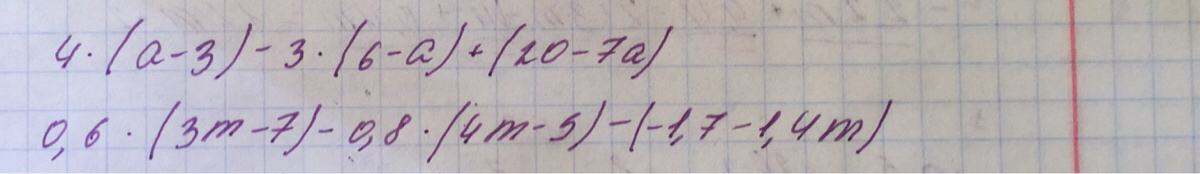 4·(a-3)-3·(6-a)+(20-7a)
0,6·(3m-7)-0,8·(4m-5)-(-1,7-1,4m)